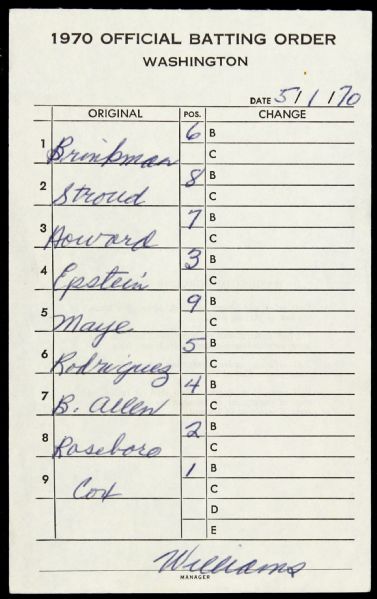 1970 OFFICIAL BATTING ORDER
WASHINGTON
DATE 5/1/70
ORIGINAL POS. CHANGE
1 Brinkman 6 B
C
2 Stroud 8 B
C
3 Howard 7 B
C
4 Epstein 3 B
C
5 Maye 9 B
C
6 Rodriguez 5 B
C
7 B. Allen 4 B
C
8 Roseboro 2 B
C
9 Cox 1 B
C
D
E
Williams
MANAGER